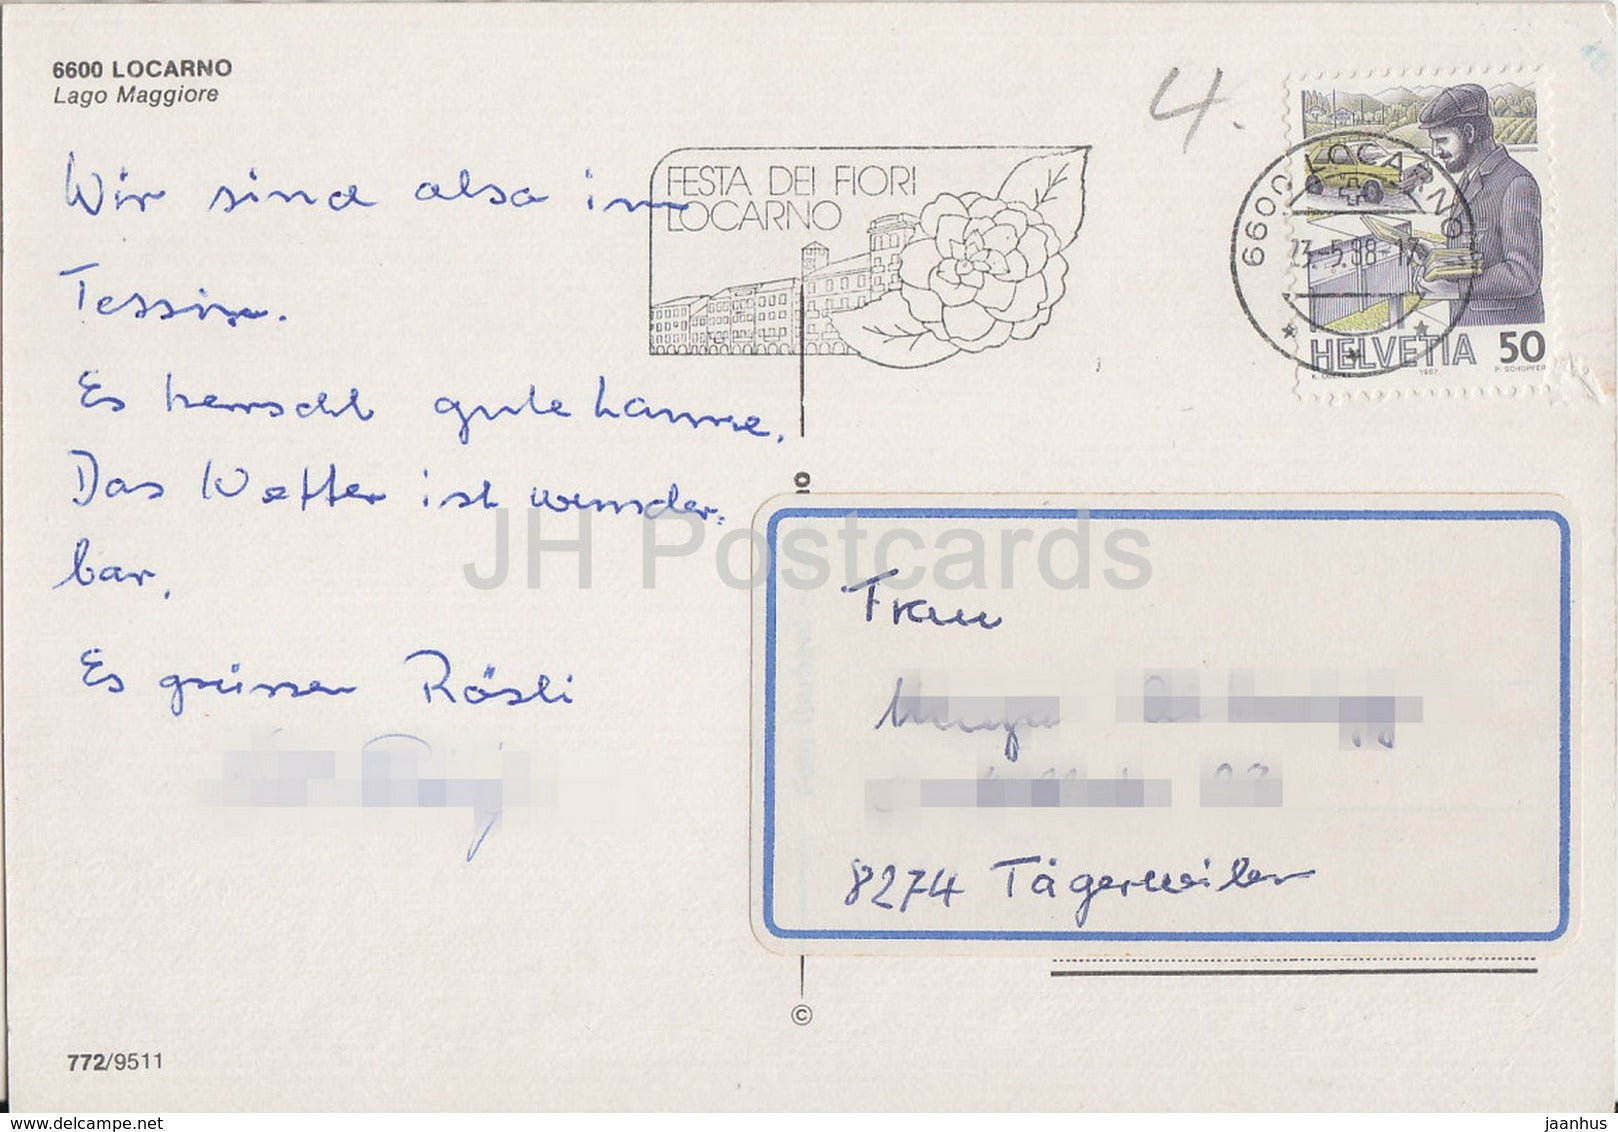 6600 LOCARNO
Lago Maggiore
4.
FESTA DEI FIORI
LOCARNO
6600 LOCARNO
23.-5.88-17
HELVETIA 50
1987 P. SCHOPFER
Wir sind also im
Tessin.
Es herrscht gute Laune.
Das Wetter ist wunder-
bar.
Es grüssen Rösli
JH Postcards
Frau
8274 Tägerweilen
©
772/9511
jaanhus